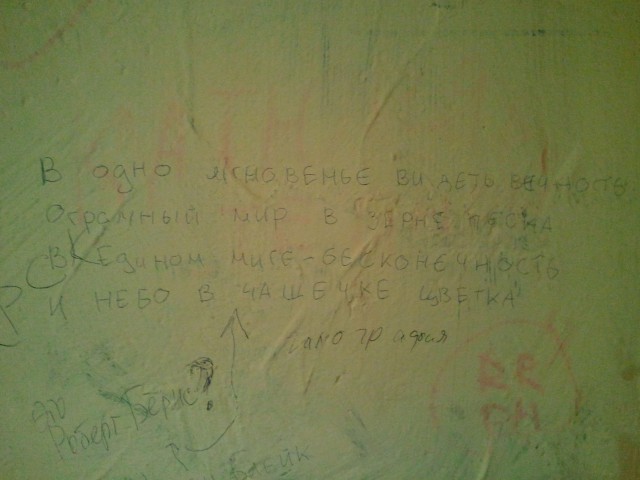 В одно мгновенье видеть вечность
Огромный мир в зерне песка
В Едином миге-бесконечность
И НЕБО В ЧАШЕЧКЕ ЦВЕТКА
Роберт Бернс?
Блейк